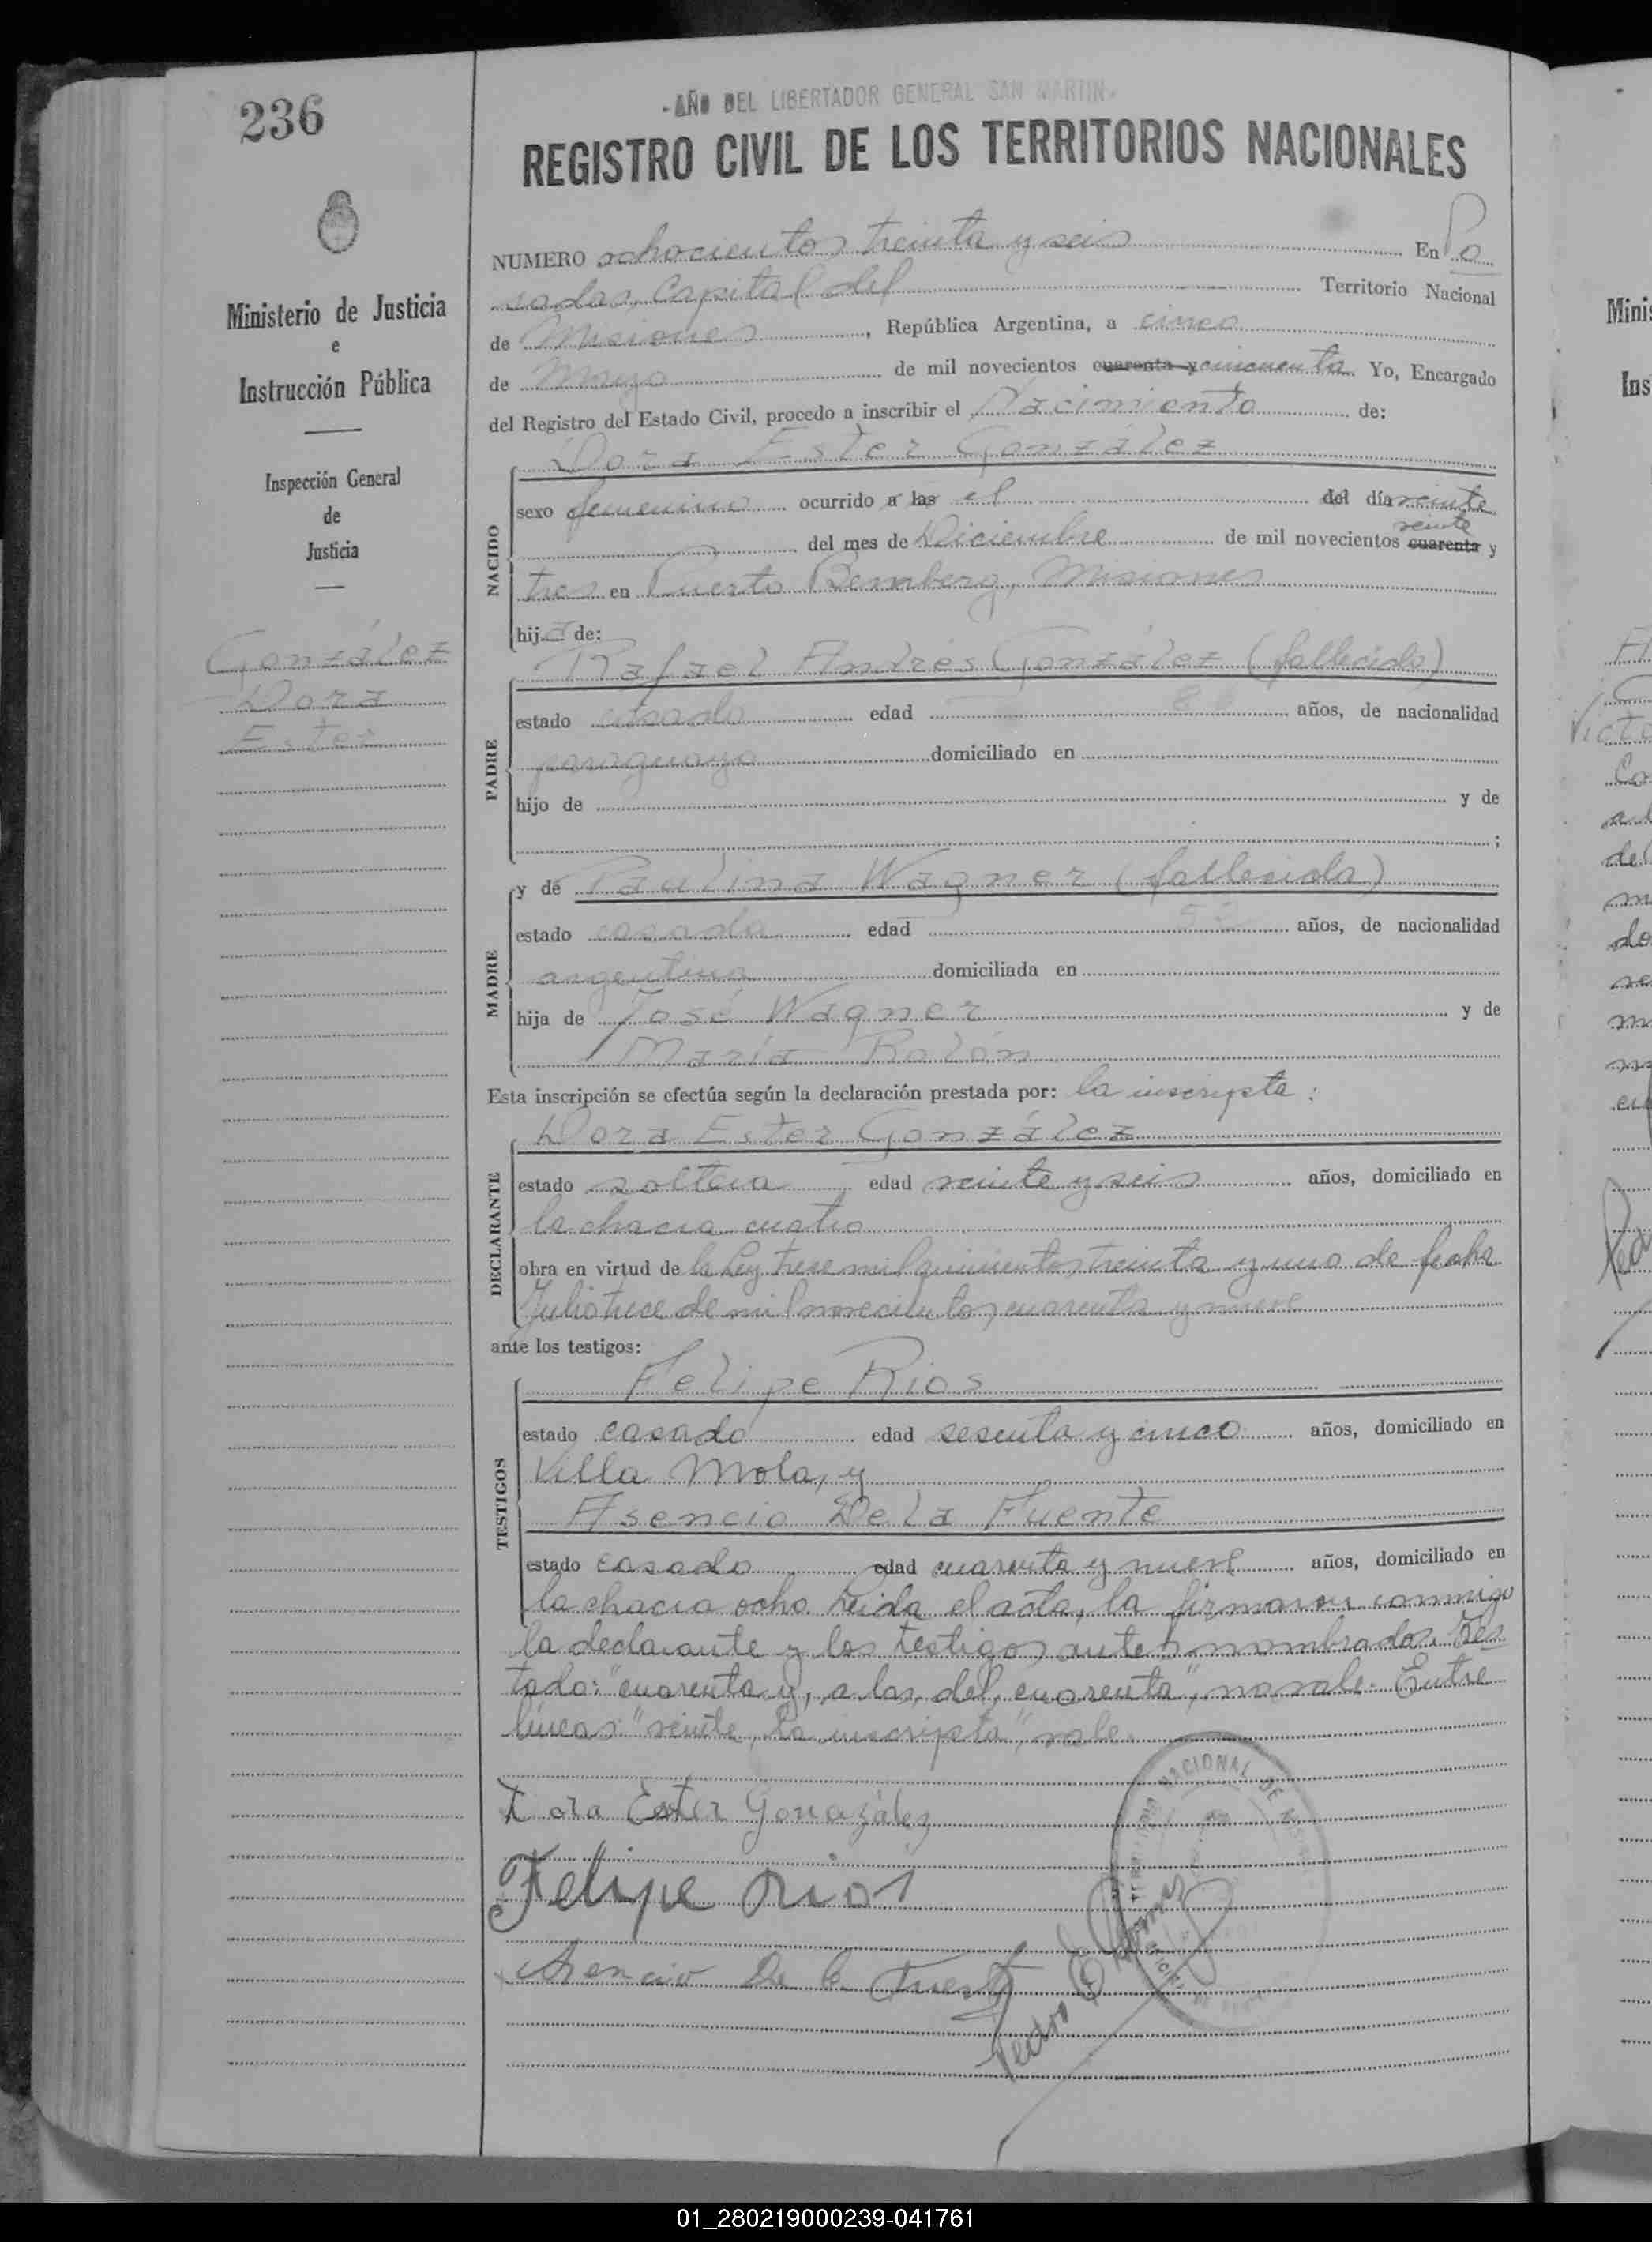 236
-AÑO DEL LIBERTADOR GENERAL SAN MARTIN-
REGISTRO CIVIL DE LOS TERRITORIOS NACIONALES
Ministerio de Justicia
e
Instrucción Pública
Inspección General
de
Justicia
González
Dora
Ester
NUMERO ochocientos treinta y seis En Po
sadas, Capital del Territorio Nacional
de Misiones, República Argentina, a cinco
de Mayo de mil novecientos cuarenta y cincuenta Yo, Encargado
del Registro del Estado Civil, procedo a inscribir el Nacimiento de:
Dora Ester González
NACIDO
sexo femenino ocurrido a las el del día veinte
veinte
del mes de Diciembre de mil novecientos cuarenta y
tres en Puerto Bemberg, Misiones
hija de:
Rafael Andrés González (fallecido)
PADRE
estado casado edad años, de nacionalidad
paraguayo domiciliado en
hijo de y de
;
y de Paulina Wagner (fallecida)
MADRE
estado casada edad años, de nacionalidad
argentina domiciliada en
hija de José Wagner y de
María Rolón
Esta inscripción se efectúa según la declaración prestada por: la inscripta:
Dora Ester González
DECLARANTE
estado soltera edad veinte y seis años, domiciliado en
la chacra cuatro
obra en virtud de la Ley trece mil quinientos treinta y uno de fecha
Julio trece de mil novecientos cuarenta y nueve
ante los testigos:
Felipe Rios
TESTIGOS
estado casado edad sesenta y cinco años, domiciliado en
Villa Mola, y
Asencio De la Fuente
estado casado edad cuarenta y nueve años, domiciliado en
la chacra ocho. Leida el acta, la firmaron conmigo
la declarante y los testigos antes nombrados. Tes
tado: "cuarenta y, a las, del, cuarenta", no vale. Entre
lineas: "veinte, la inscripta", vale.
Dora Ester Gonazález
Felipe rios
Asencio De la Fuente
Pedro
NACIONAL DE
01_280219000239-041761